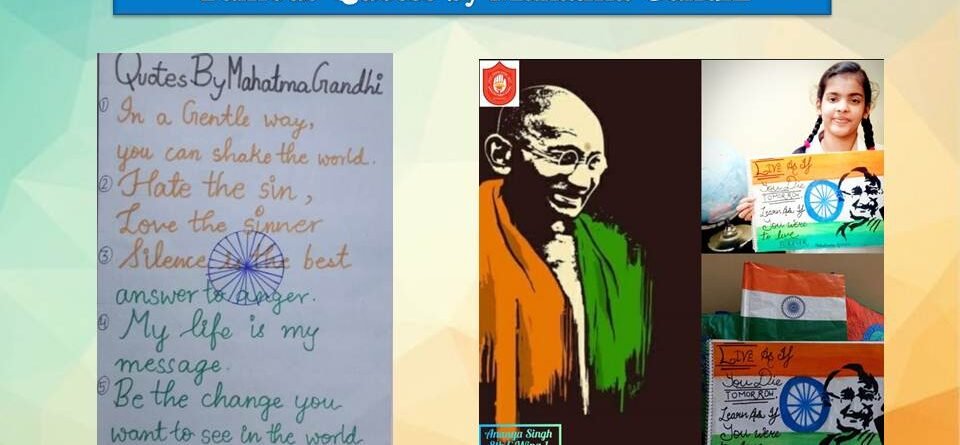 Famous Quotes by Mahatma Gandhi
Quotes By Mahatma Gandhi
① In a Gentle way,
you can shake the world.
② Hate the sin,
Love the sinner
③ Silence is the best
answer to anger.
④ My life is my
message.
⑤ Be the change you
want to see in the world
Ananya Singh
LIVE As If
You Die
TOMORROW
Learn As If
You were
to live
LIVE As If
You Die
TOMORROW
Learn As If
You were